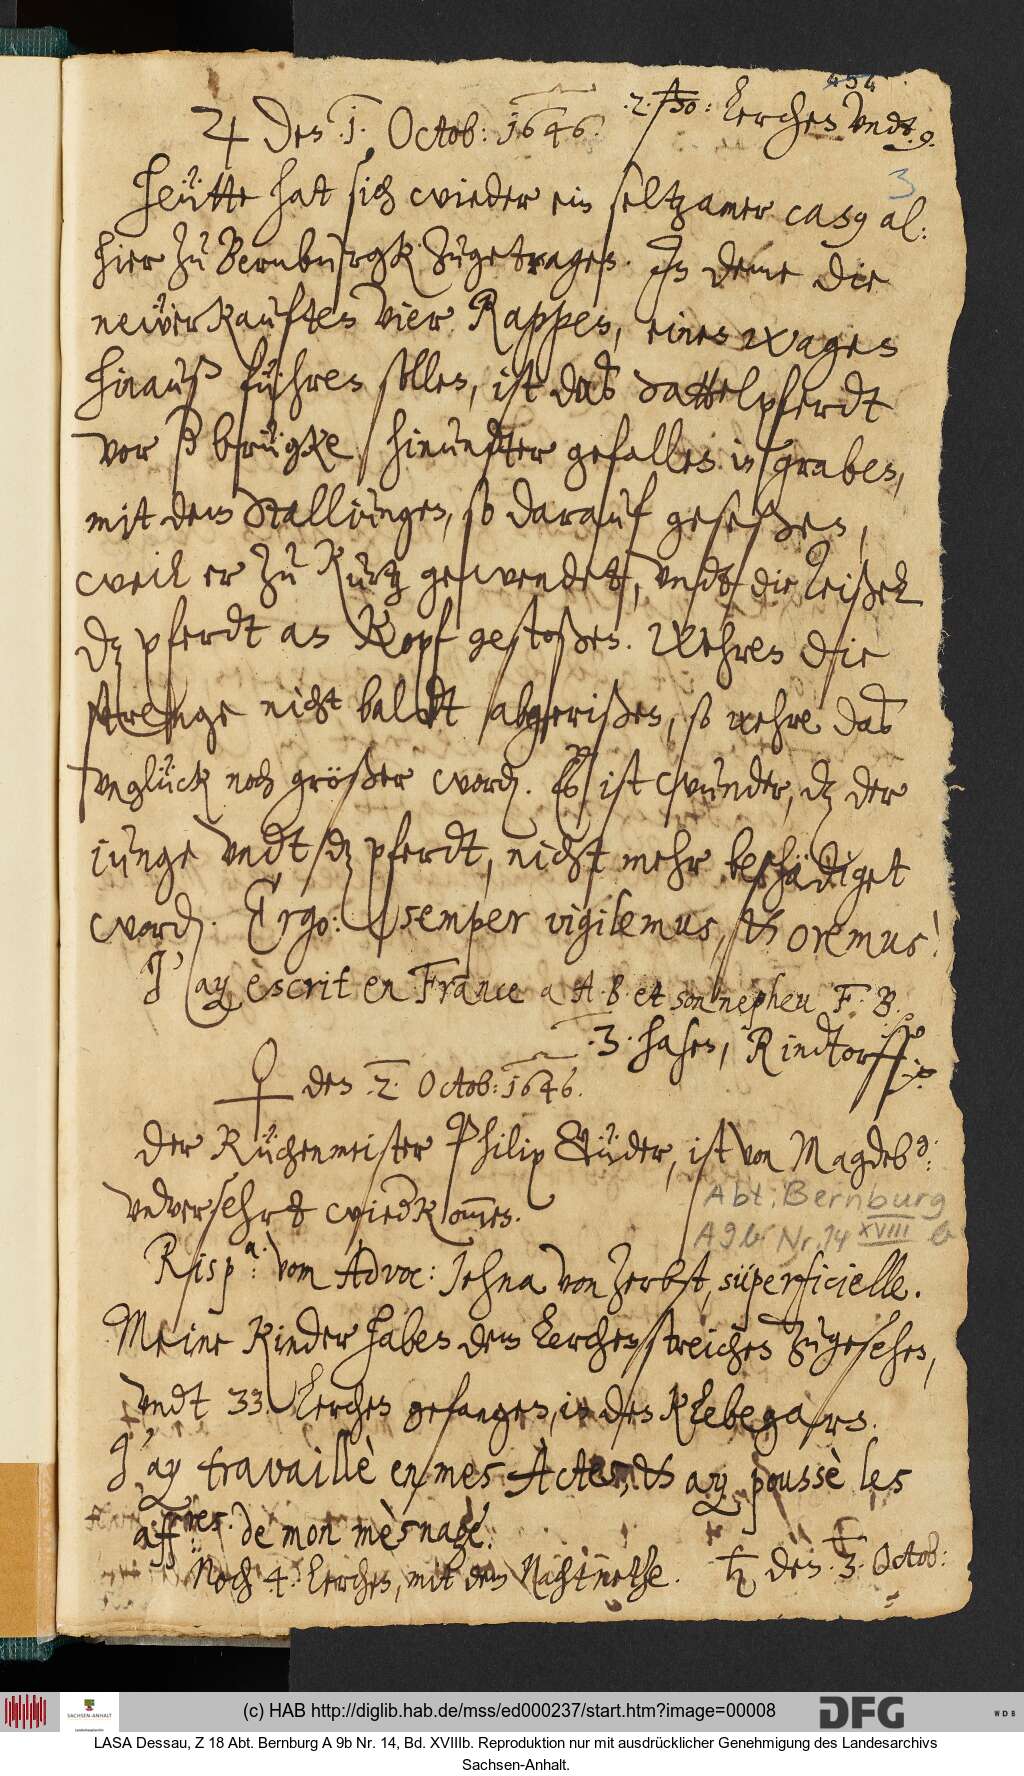 454
3
♃ den 1. Octob: 1646.
2. Lerchen vndt
Heütte hat sich wieder ein seltzamer casus al:
hier zu Bernburgk zugetragen. In deme die
neẅerkauften vier Rappen, einen wagen
hinauß führen sollen, ist das Sattelpferdt
vor der brügke hinundter gefallen in graben,
mit dem Stalliungen, so darauf geseßen,
weil er zu kurtz gewendet, vndt die Deißel
dz pferdt an kopf gestoßen. Wehren die
strenge nicht baldt abgerißen, so wehre das
vnglück noch größer word. Es ist wunder, dz der
iunge vndt dz pferdt, nicht mehr beschädiget
word. Ergo: semper vigilemus, & oremus!
J'ay èscrit en France a A. B. et son nepheu F. B.
3. hasen, Rindtorff
♀ den 2. Octob: 1646.
Der Küchenmeister Philip Güder, ist von Magdeb:
vnversehrt wiedkommen.
Risp.a: vom Advoc: Jehna von Zerbst, süperficielle.
Meine Kinder haben dem Lerchenstreichen zugesehen,
vndt 33 Lerchen gefangen, in den Klebegarn.
J'ay travaillè en mes Actes, & ay poussè les
aff:res de mon mèsnage.
Noch 4. Lerchen, mit dem Nachtnetze. ♄ den 3. Octob:
Abt. Bernburg
A 9b Nr. 14 XVIII b
(c) HAB http://diglib.hab.de/mss/ed000237/start.htm?image=00008
SACHSEN-ANHALT
DFG
WDB
LASA Dessau, Z 18 Abt. Bernburg A 9b Nr. 14, Bd. XVIIIb. Reproduktion nur mit ausdrücklicher Genehmigung des Landesarchivs
Sachsen-Anhalt.